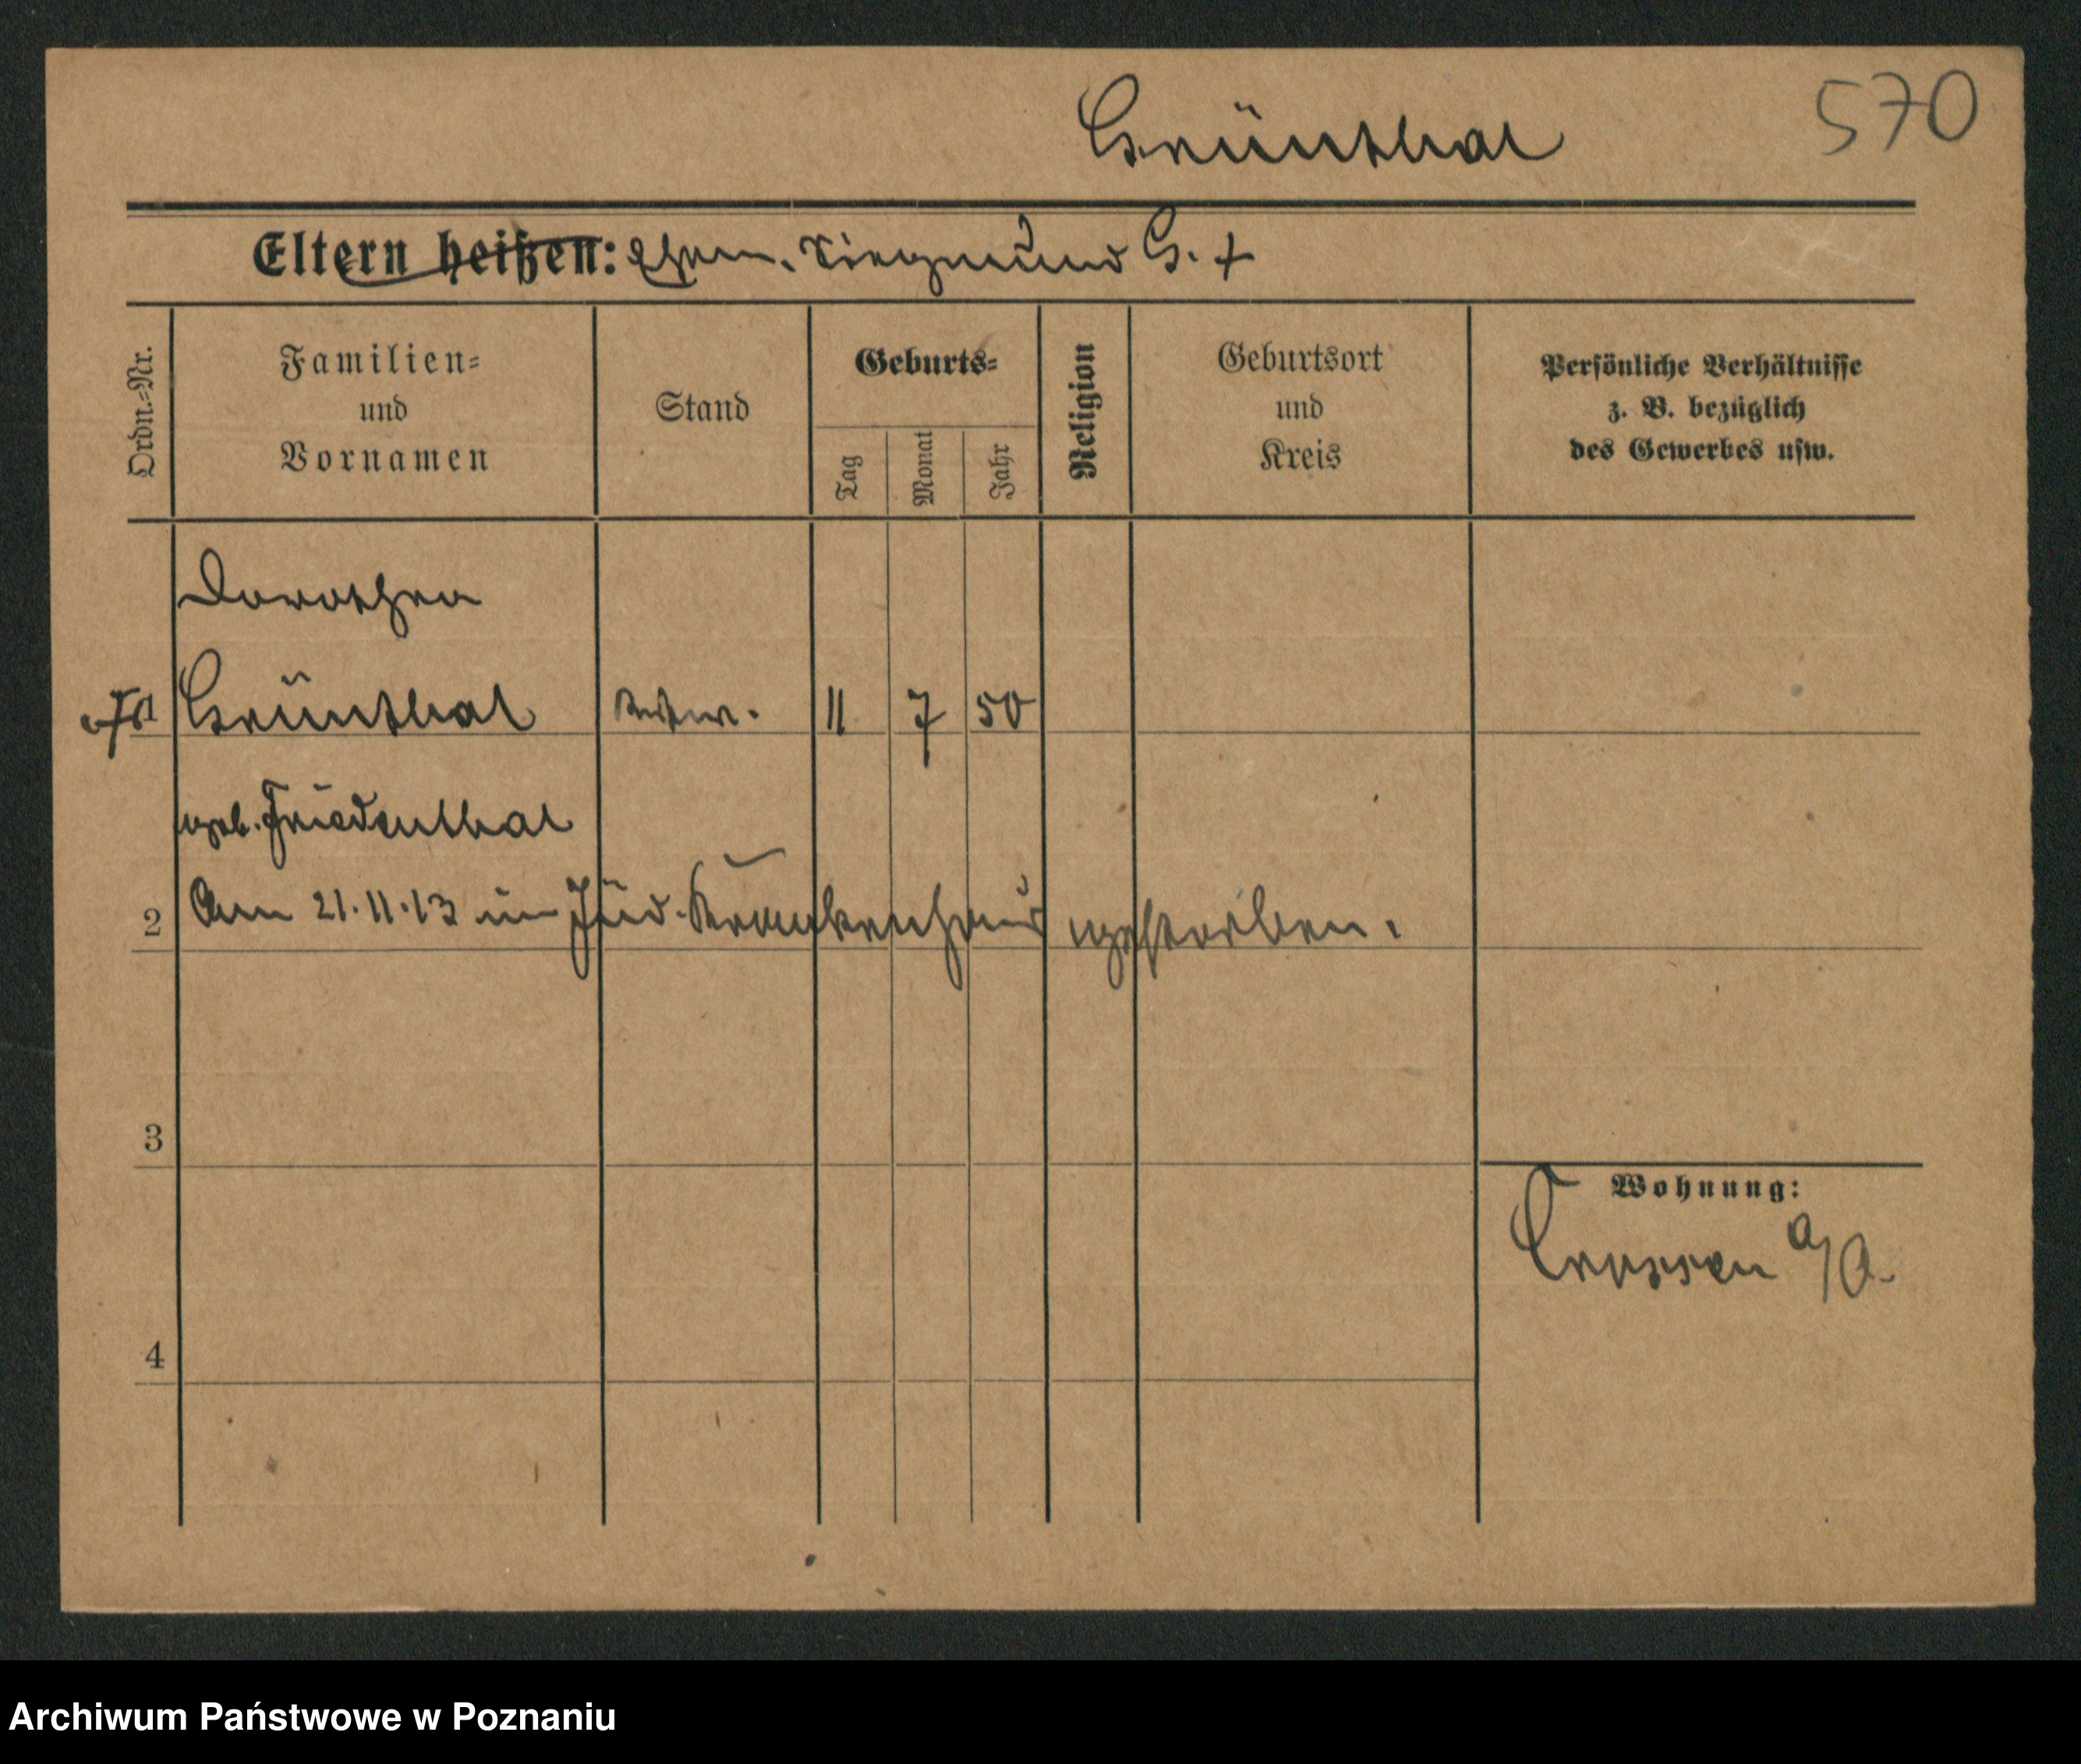 Grünthal
570
Eltern heißen: Ehem. Siegmund G. +
Ordn.-Nr.
Familien-
und
Vornamen
Stand
Geburts-
Tag
Monat
Jahr
Religion
Geburtsort
und
Kreis
Persönliche Verhältnisse
z. B. bezüglich
des Gewerbes usw.
Dorothea
Grünthal
11 7 50
geb. Friedenthal
2 Am 21.11.13 im Jüd. Krankenhaus gestorben.
3
Wohnung:
Crossen a/O.
4
Archiwum Państwowe w Poznaniu